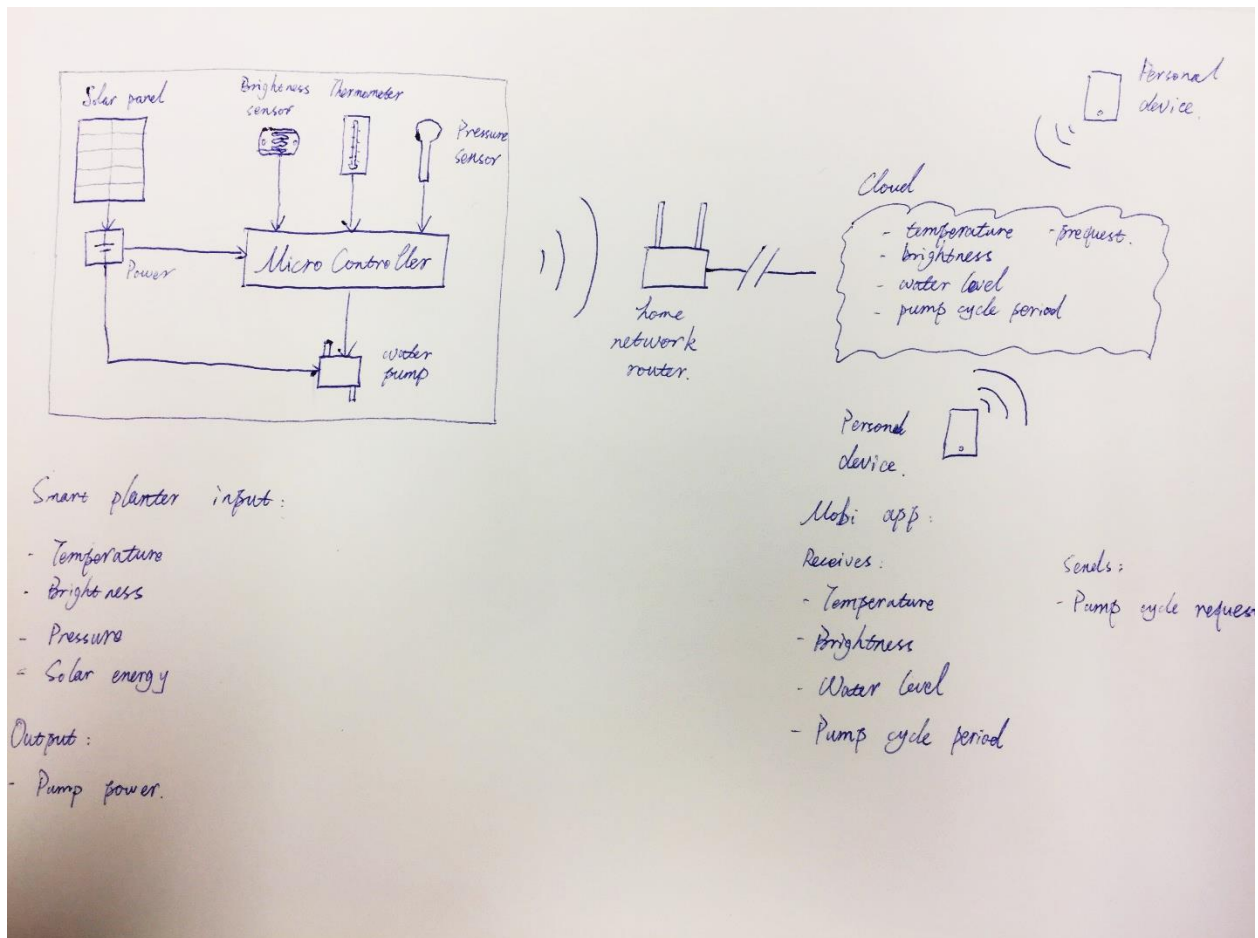 Solar panel
Brightness
sensor
Thermometer
Pressure
sensor
Power
Micro Controller
water
pump
home
network
router.
Personal
device.
Cloud
- temperature - prequest.
- brightness
- water level
- pump cycle period
Personal
device.
Smart planter input:
- Temperature
- Brightness
- Pressure
- Solar energy
Output:
- Pump power.
Mobi app:
Receives:
- Temperature
- Brightness
- Water Level
- Pump cycle period
Sends:
- Pump cycle reques